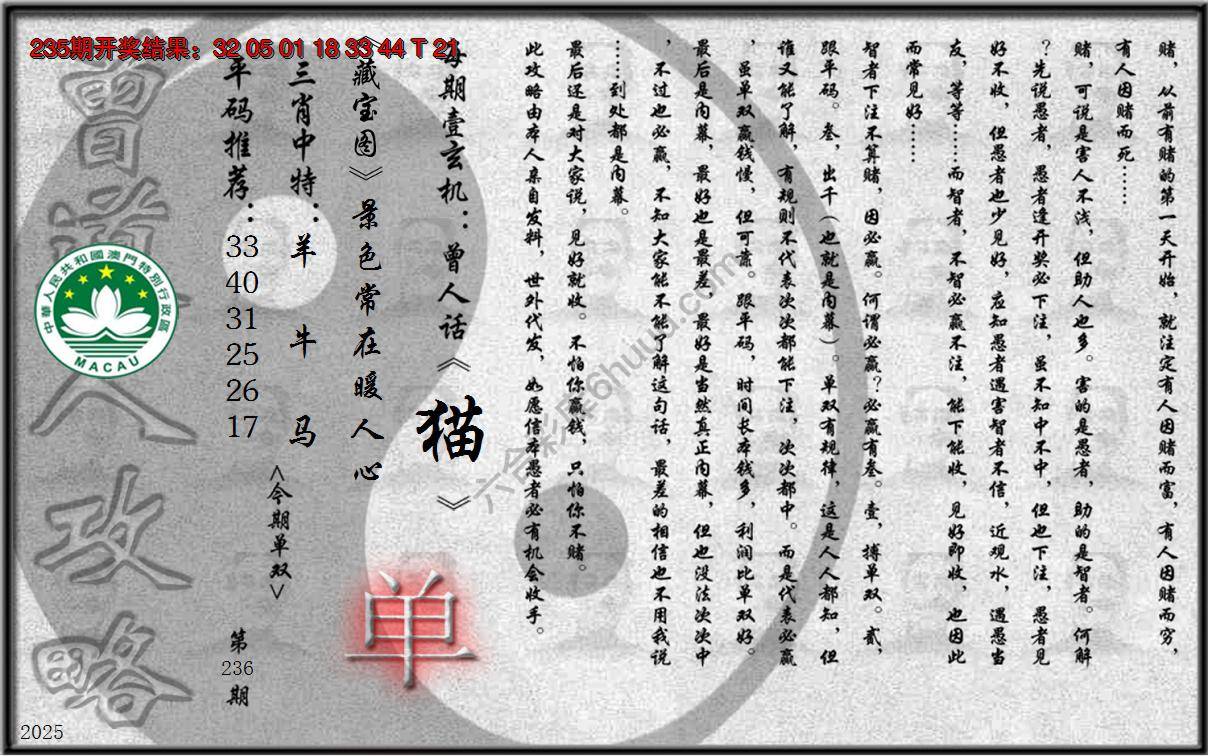 235期开奖结果：32 05 01 18 33 44 T 21
赌，从前有赌的第一天开始，就注定有人因赌而富，有人因赌而穷，
有人因赌而死……
赌，可说是害人不浅，但助人也多。害的是愚者，助的是智者。何解
？先说愚者，愚者逢开奖必下注，虽不知中不中，但也下注，愚者见
好不收，但愚者也少见好，应知愚者遇害智者不信，近观水，遇愚当
友，等等……而智者，不智必赢不注，能下能收，见好即收，也因此
而常见好……
智者下注不算赌，因必赢。何谓必赢？必赢有叁。壹，搏单双。贰，
跟平码。叁，出千（也就是内幕）。单双有规律，这是人人都知，但
谁又能了解，有规则不代表次次都能下注，次次都中。而是代表必赢
，虽单双赢钱慢，但可靠。跟平码，时间长本钱多，利润比单双好。
最后是内幕，最好也是最差，最好是当然真正内幕，但也没法次次中
，不过也必赢，不知大家能不能了解这句话，最差的相信也不用我说
……到处都是内幕。
最后还是对大家说，见好就收。不怕你赢钱，只怕你不赌。
此攻略由本人亲自发料，世外代发，如愿信本愚者必有机会收手。
每期壹玄机：曾人话《猫》
《藏宝图》景色常在暖人心
三肖中特：羊 牛 马
平码推荐：33 40 31 25 26 17
<今期单双>
单
第236期
曾道人攻略
中華人民共和國澳門特別行政區
MACAU
六合彩库6huu.com
2025